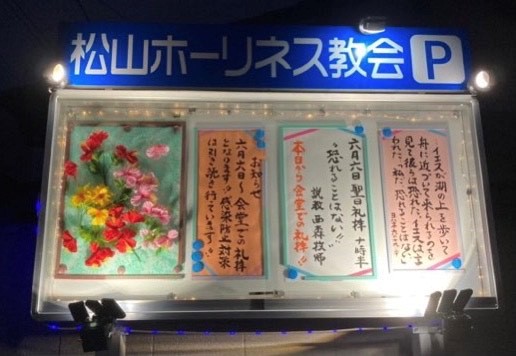 松山ホーリネス教会 P
イエスが湖の上を歩いて
舟に近づいて来られるのを
見て彼らは恐れた。イエスは言
われた。「私だ。恐れることはない。
六月六日 聖日礼拝 十時半
"恐れることはない"
説教 西森牧師
本日から会堂での礼拝!!
お知らせ
六月六日〜会堂での礼拝
となります。感染防止対策
は引き続き行っています